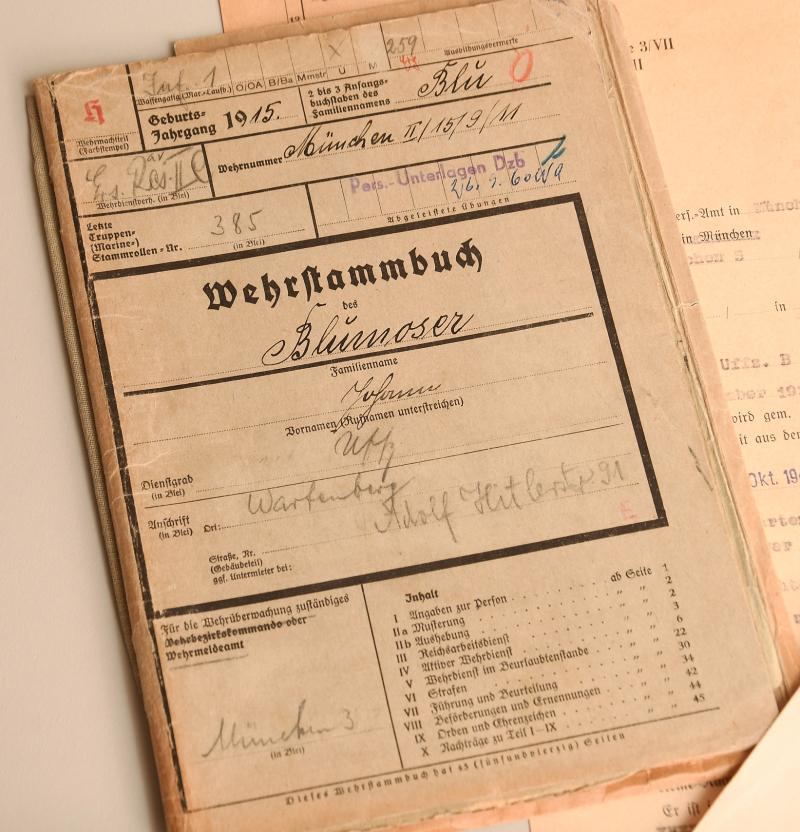 Inf. 1
X
259
Waffengattg.(Mar.-Laufb.) O/OA B/Ba Mmstr U M
Ausbildungsvermerke
H
Wehrmachtteil
(Farbstempel)
Geburts-
Jahrgang 1915.
2 bis 3 Anfangs-
buchstaben des
Familiennamens Blu
0
Ers. Res. II
Wehrdienstverh. (in Blei)
Wehrnummer München II/15/9/11
Pers.-Unterlagen Dzb
Abgeleistete Übungen
Letzte
Truppen-
(Marine-)
Stammrollen-Nr. 385
(in Blei)
Wehrstammbuch
des
Blumoser
Familienname
Johann
Vornamen (Rufnamen unterstreichen)
Dienstgrad Uffz
(in Blei)
Anschrift Ort: Wartenberg
(in Blei)
Adolf Hitlerstr 91
Straße, Nr.
(Gebäudeteil)
ggf. Untermieter bei:
E
Für die Wehrüberwachung zuständiges
Wehrbezirkskommando oder
Wehrmeldeamt
München 3
(in Blei)
Inhalt ab Seite
I Angaben zur Person 1
IIa Musterung 2
IIb Aushebung 2
III Reichsarbeitsdienst 3
IV Aktiver Wehrdienst 6
V Wehrdienst im Beurlaubtenstande 22
VI Strafen 30
VII Führung und Beurteilung 34
VIII Beförderungen und Ernennungen 42
IX Orden und Ehrenzeichen 44
X Nachträge zu Teil I–IX 45
Dieses Wehrstammbuch hat 45 (fünfundvierzig) Seiten
3/VII
II
ers.-Amt in
in München
in
Uffz. B
wird gem.
it aus dem
Okt. 194
Er ist